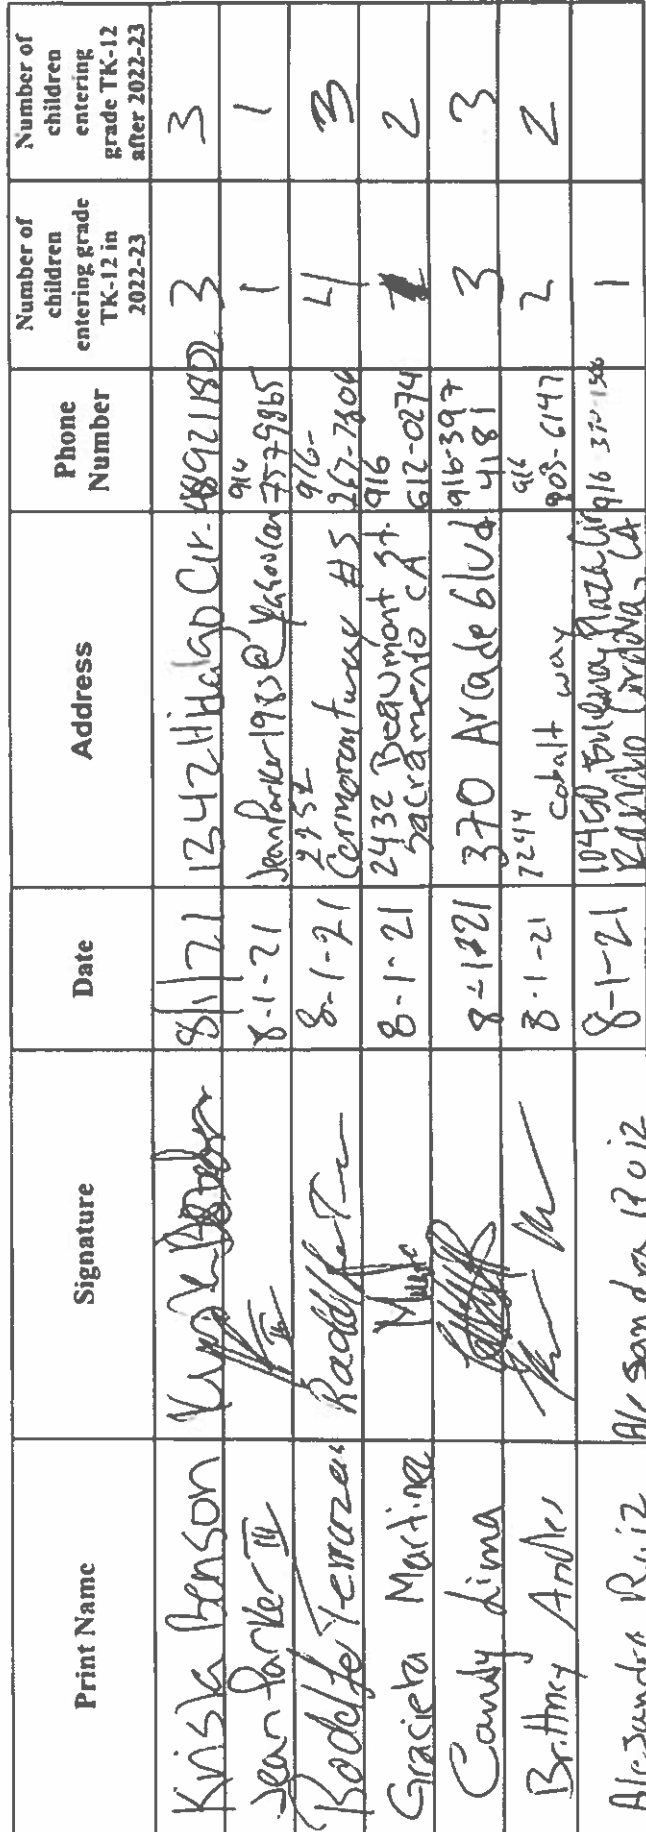 Print Name
Signature
Date
Address
Phone
Number
Number of
children
entering grade
TK-12 in
2022-23
Number of
children
entering
grade TK-12
after 2022-23
Krista Benson
8/1/21
1342 Hidalgo Cir.
489211802
3
3
Sean Parker III
8-1-21
SeanParker1983@
916
757-9865
1
1
Rodolfo Terrazas
8-1-21
2252
#5
916-
267-7804
4
3
Gracieta Martinez
8-1-21
2432 Beaumont St.
Sacramento CA
916
612-0274
2
Candy Lima
8-1-21
370 Arcade blvd
916-397
4181
3
3
Brittney Andles
8-1-21
7244
Cobalt way
916
905-6147
2
2
Alesandra Ruiz
Alesandra Ruiz
8-1-21
10450
Rancho Cordova, CA
916
1